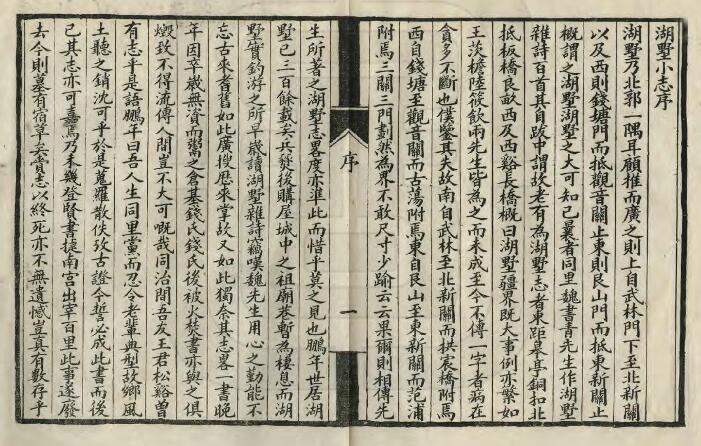 湖墅小志序
湖墅乃北郭一隅耳顧推而廣之則上自武林門下至北新關
以及西則錢塘門而抵觀音關止東則艮山門而抵東新關止
概謂之湖墅湖墅之大可知已曩者同里魏書青先生作湖墅
雜詩百首其自跋中謂故老有為湖墅志者東距皋亭銅扣北
抵板橋良畝西及西谿長橋概曰湖墅疆界既大事例亦繁如
王茨檐陸筱飲兩先生皆為之而未成至今不傳一字者病在
貪多不斷也僕鑒其失故南自武林至北新關而拱宸橋附焉
西自錢塘至觀音關而古蕩附焉東自艮山至東新關而范浦
附焉三關三門劃然為界不敢尺寸少踰云云果爾則相傳先
序
一
生所著之湖墅志畧度亦準此而惜乎莫之見也鵬年世居湖
墅已三百餘載矣兵燹後購屋城中之祖廟巷暫為棲息而湖
墅實釣游之所早歲讀湖墅雜詩竊嘆魏先生用心之勤能不
忘古來耆舊如此廣搜歷來掌故又如此獨奈其志畧一書晚
年因卒歲無資而鬻之倉基錢氏錢氏後被火焚書亦與之俱
燬致不得流傳人間豈不大可嘅哉同治間吾友王君松谿曾
有志乎是語鵬年曰吾人生同里黨而忍令老輩典型故鄉風
土聽之銷沈可乎於是蒐羅散佚攷古證今誓必成此書而後
已其志亦可嘉焉乃未幾登賢書捷南宮出宰百里此事遂廢
去今則墓有宿草矣賫志以終死亦不無遺憾豈真有數存乎